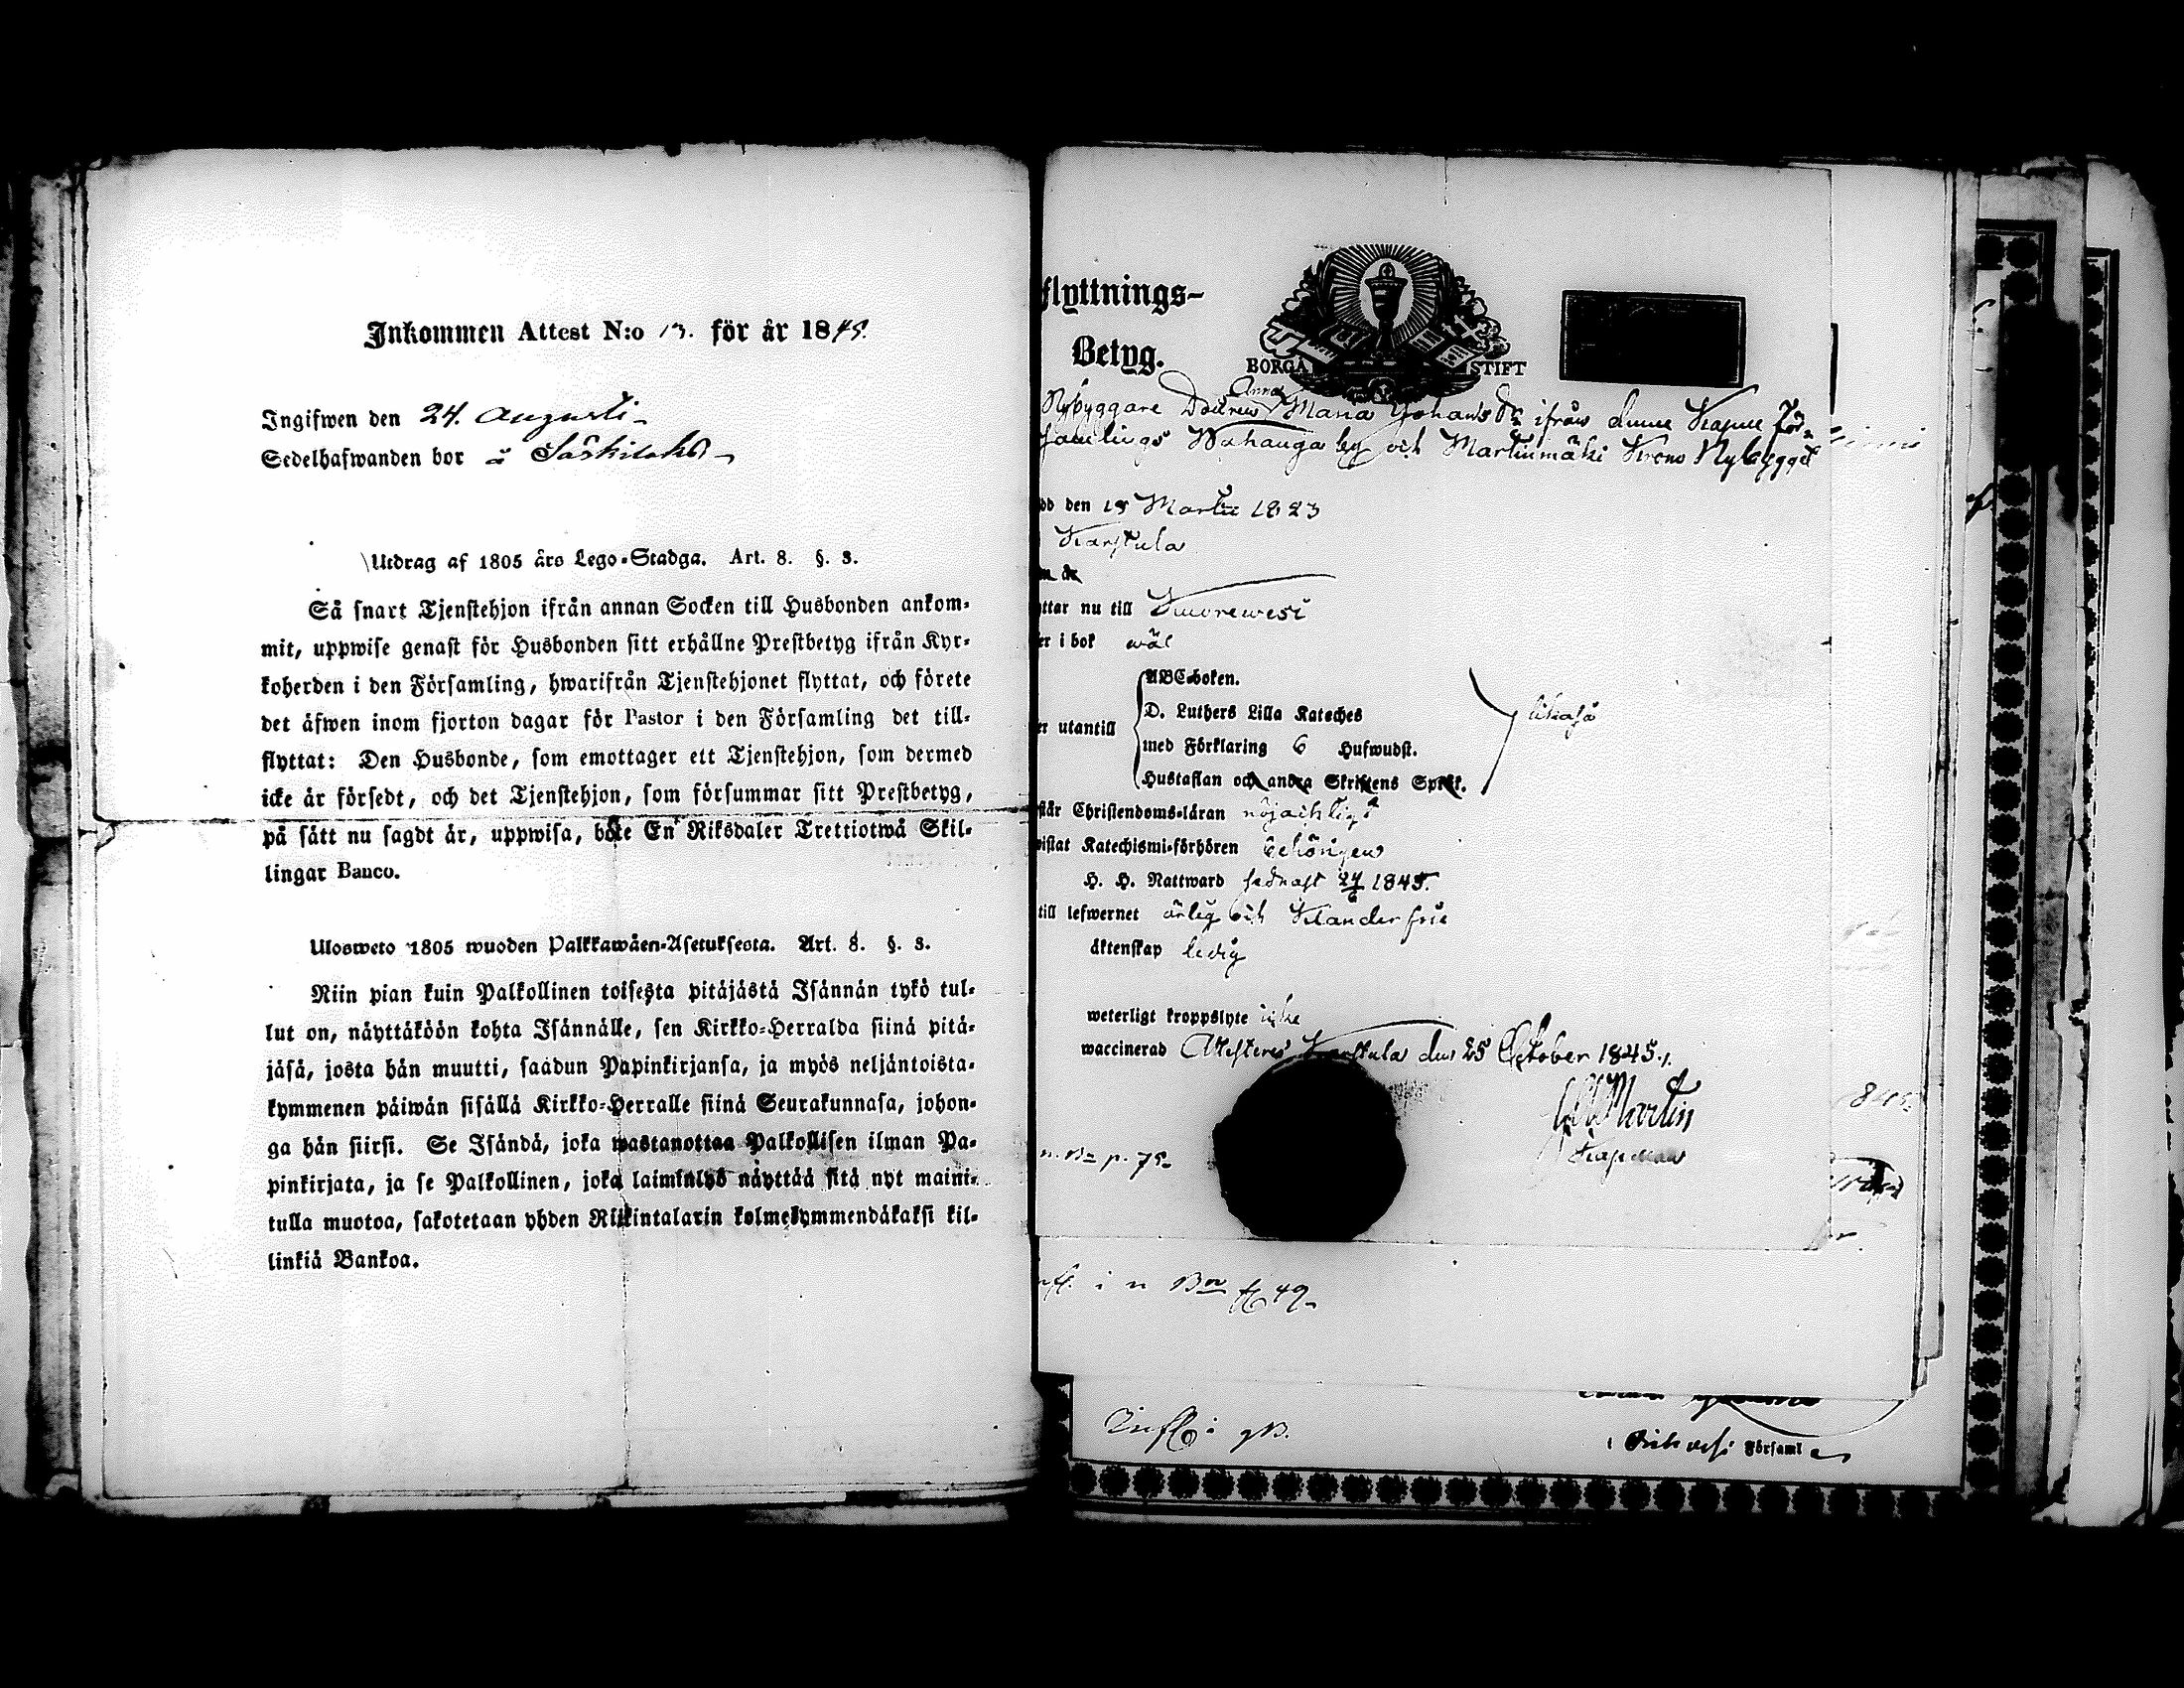 Inkommen Attest N:o 13. för år 1845.
Ingifwen den 24. Augusti
Sedelhafwanden bor å
Utdrag af 1805 års Lego-Stadga. Art. 8. §. 3.
Så snart Tjenstehjon ifrån annan Socken till Husbonden ankom-
mit, uppwise genast för Husbonden sitt erhållne Prestbetyg ifrån Kyr-
koherden i den Församling, hwarifrån Tjenstehjonet flyttat, och förete
det äfwen inom fjorton dagar för Pastor i den Församling det till-
flyttat: Den Husbonde, som emottager ett Tjenstehjon, som dermed
icke är försedt, och det Tjenstehjon, som försummar sitt Prestbetyg,
på sätt nu sagdt är, uppwisa, böte En Riksdaler Trettiotwå Skil-
lingar Banco.
Ulosweto 1805 wuoden Palkkawäen-Asetuksesta. Art. 8. §. 3.
Niin pian kuin Palkollinen toisesta pitäjästä Isännän tykö tul-
lut on, näyttäköön kohta Isännälle, sen Kirkko-Herralda siinä pitä-
jäsä, josta hän muutti, saadun Papinkirjansa, ja myös neljäntoista-
kymmenen päiwän sisällä Kirkko-Herralle siinä Seurakunnasa, johon-
ga hän siirsi. Se Isändä, joka wastanottaa Palkollisen ilman Pa-
pinkirjata, ja se Palkollinen, joka laiminlyö näyttää sitä nyt maini-
tulla muotoa, sakotetaan yhden Riikintalarin kolmekymmendäkaksi kil-
linkiä Bankoa.
flyttnings-
Betyg.
BORGÅ STIFT
Nybyggare Dottren Anna Maria Johans Dr ifrån denne För-
samlings Wahanga by och Martinmäki Krono Nybygge
dd den 18 Martii 1823
Karstula
n är
yttar nu till Kuorewesi
er i bok wäl
ABC-boken.
D. Luthers Lilla Kateches
er utantill
med Förklaring 6 Hufwudst.
likaså
Hustaflan och andra Skriftens Språk.
står Christendoms-läran nöjachtigt
wistat Katechismi-förhören behörigen
H. H. Nattward sednast 24/6 1845.
till lefwernet ärlig och Klanderfrie
äktenskap ledig
weterligt kroppslyte icke
waccinerad Attesteres Karstula den 25 October 1845.
Martin
Kapellan
p. 75
i n Bn 49
Infl i
Församl